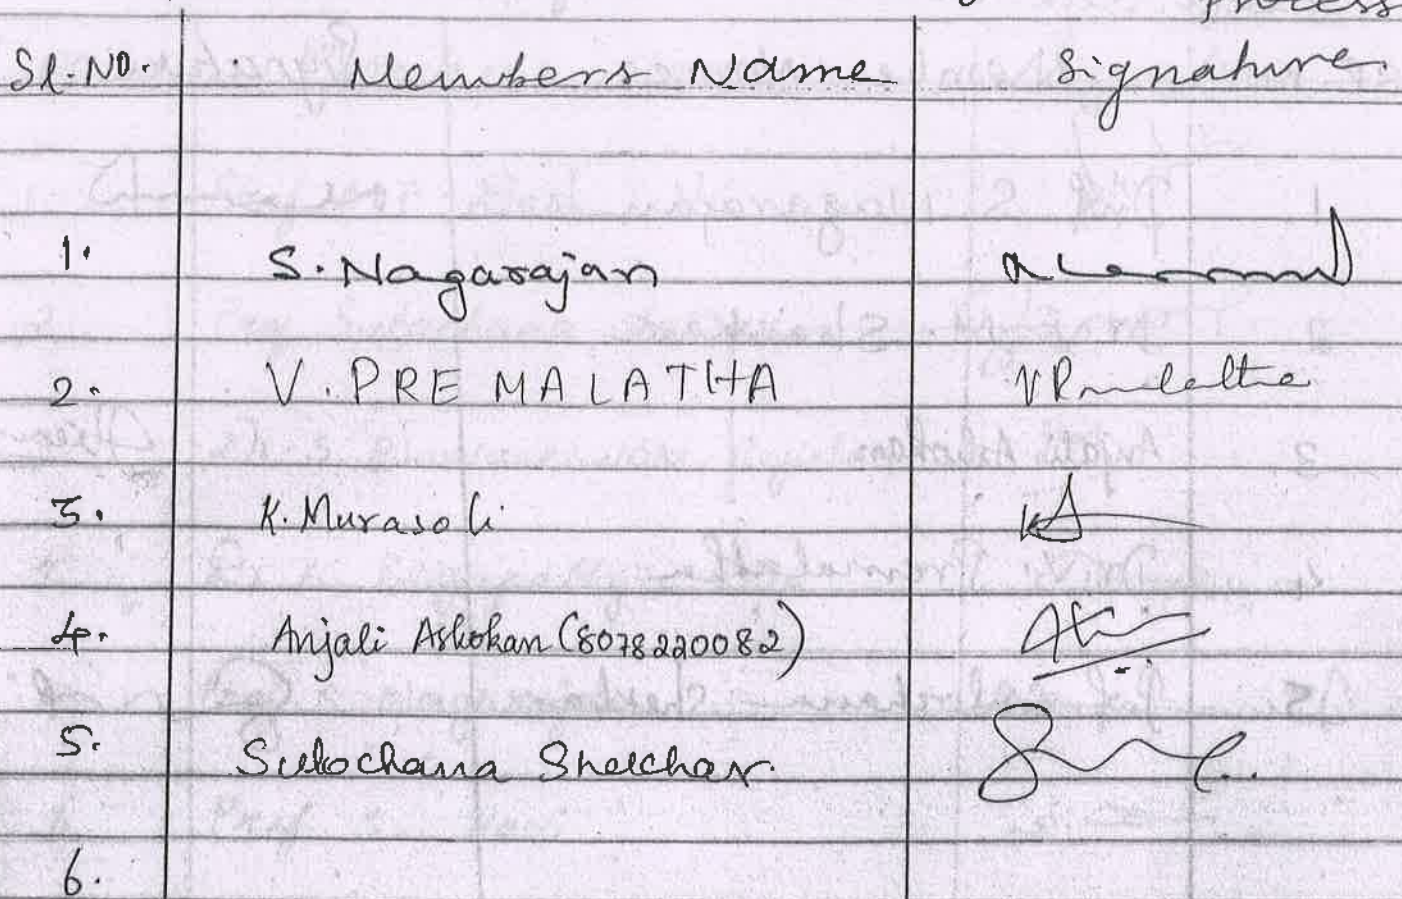 Process
Sl.No. Members Name Signature
1. S. Nagarajan
2. V. PREMALATHA VPremalatha
3. K. Murasoli
4. Anjali Ashokan (8078220082)
5. Sulochana Shekhar.
6.